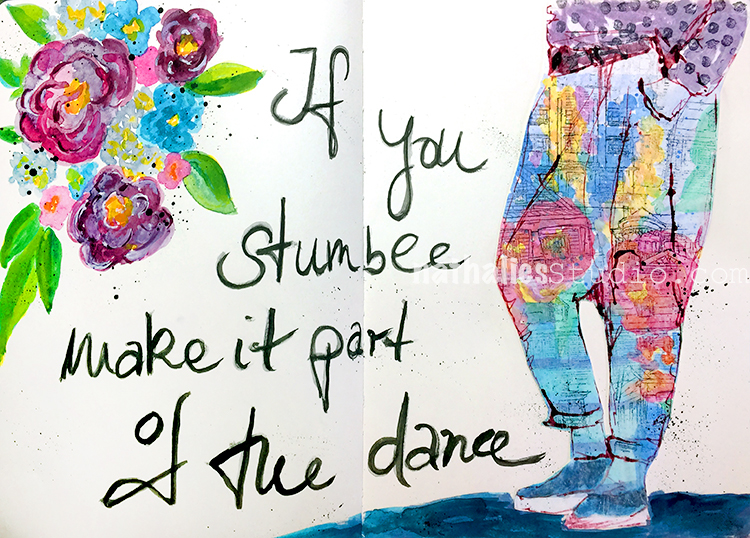 If
you
stumble
nathaliesstudio.com
make it part
of the dance